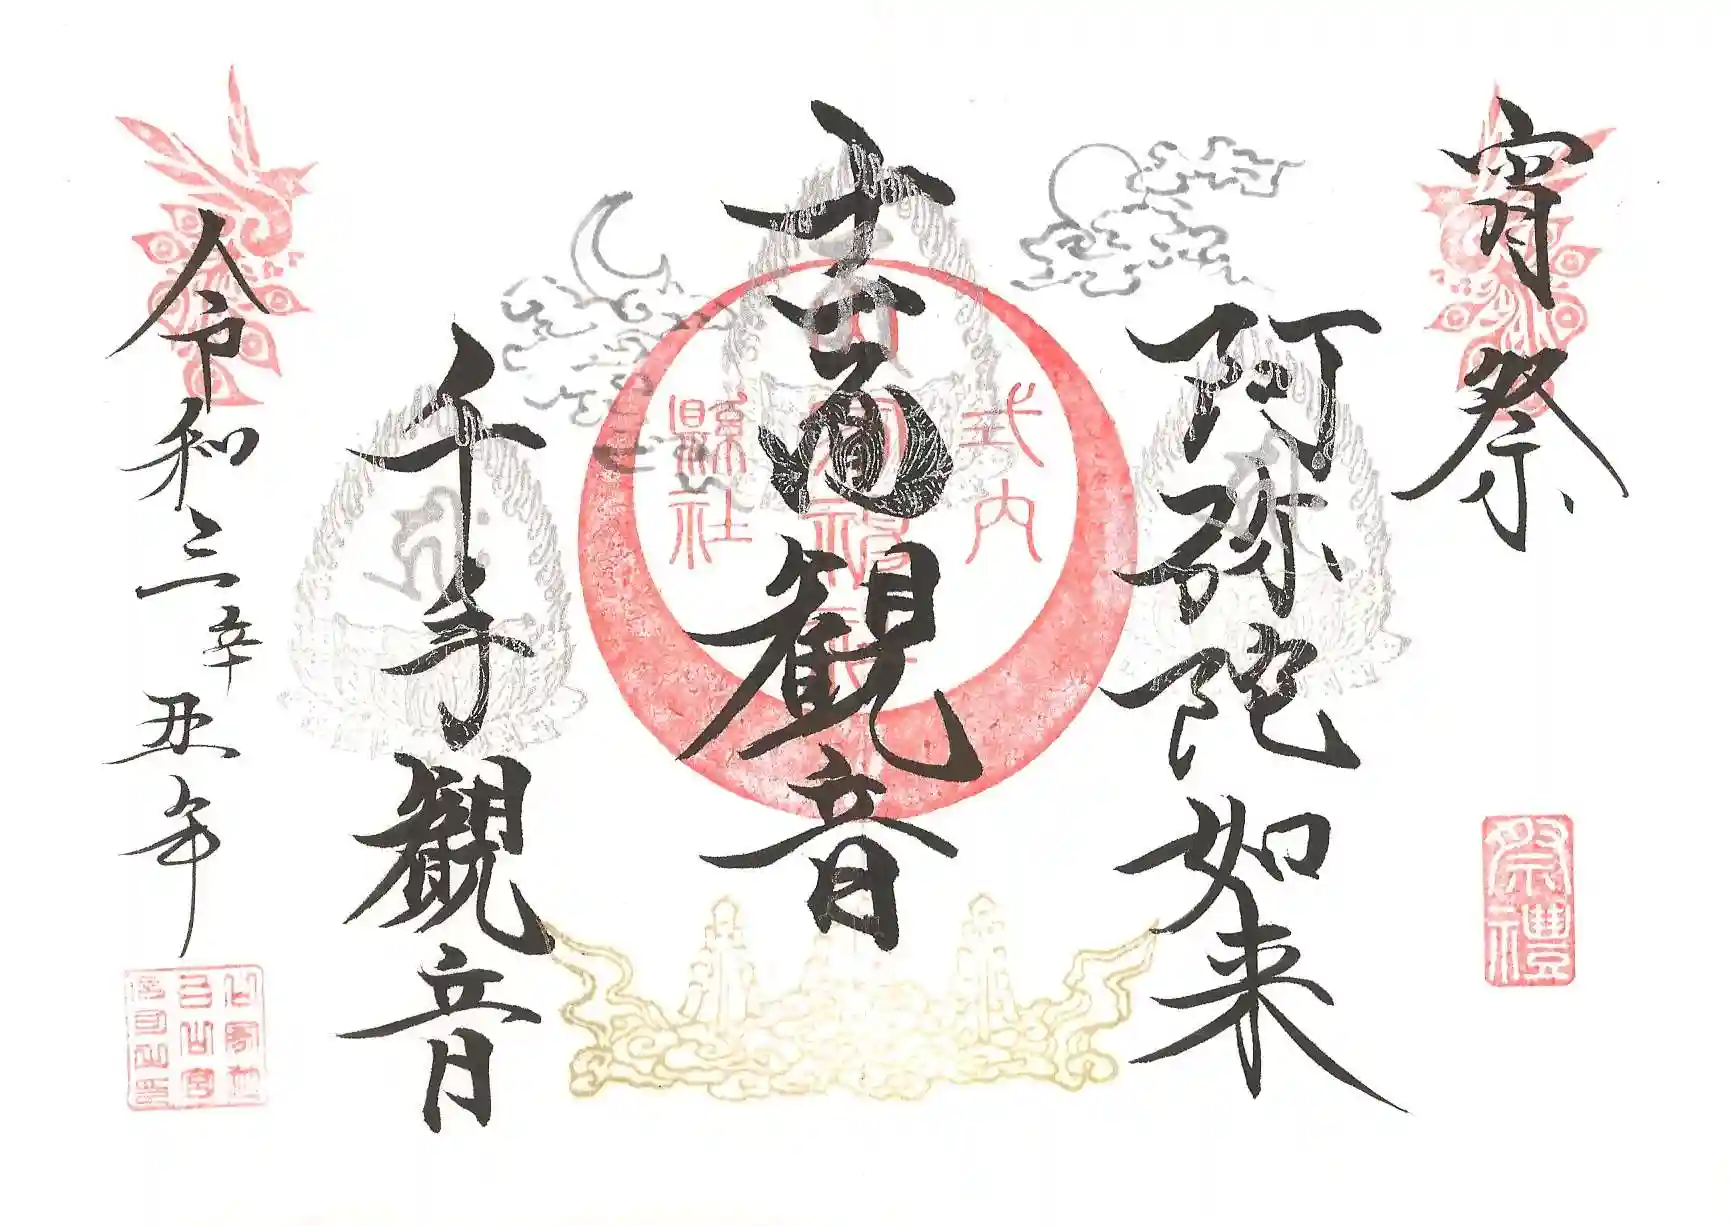 宵祭
阿弥陀如来
十一面観音
千手観音
令和三辛丑年
式内
縣社
祭禮